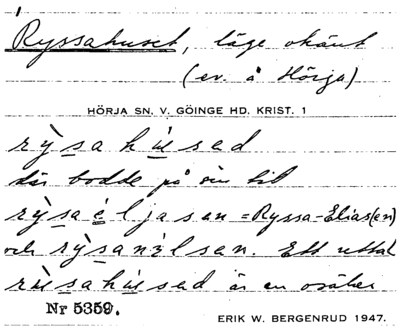 Ryssahuset, läge okänt
(ev. å Hörja)
HÖRJA SN. V. GÖINGE HD. KRIST. 1
rỳsahùsed
där bodde på sin tid
rỳsaéljasen = Ryssa-Elias(en)
och rỳsanilsen. Ett uttal
rùsahùsed är en osäker
Nr 5359.
ERIK W. BERGENRUD 1947.